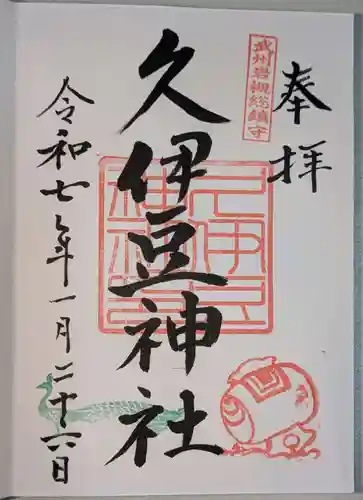 奉拝
武州岩槻総鎮守
久伊豆神社
久伊豆神社印
令和七年一月二十六日